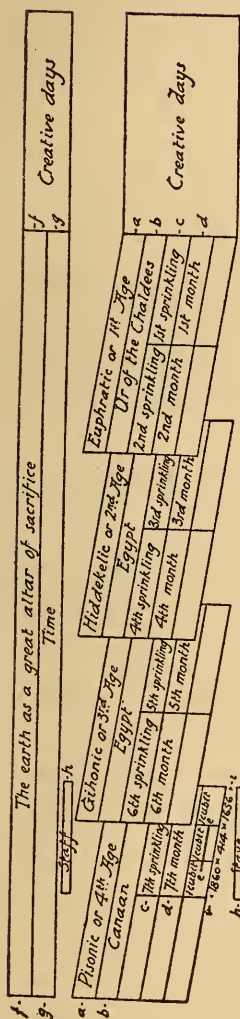 The earth as a great altar of sacrifice
Time
f-
g-
-f
-g
Creative days
Staff
-h
a-
b-
Pisonic or 4th Age
Canaan
c- 7th sprinkling
d- 7th month
1 cubit 1 cubit 1 cubit
e e
Gihonic or 3rd Age
Egypt
6th sprinkling 5th sprinkling
6th month 5th month
Hiddekelic or 2nd Age
Egypt
4th sprinkling 3rd sprinkling
4th month 3rd month
Euphratic or 1st Age
Ur of the Chaldees
2nd sprinkling 1st sprinkling
2nd month 1st month
-a
-b
-c
-d
Creative days
h-